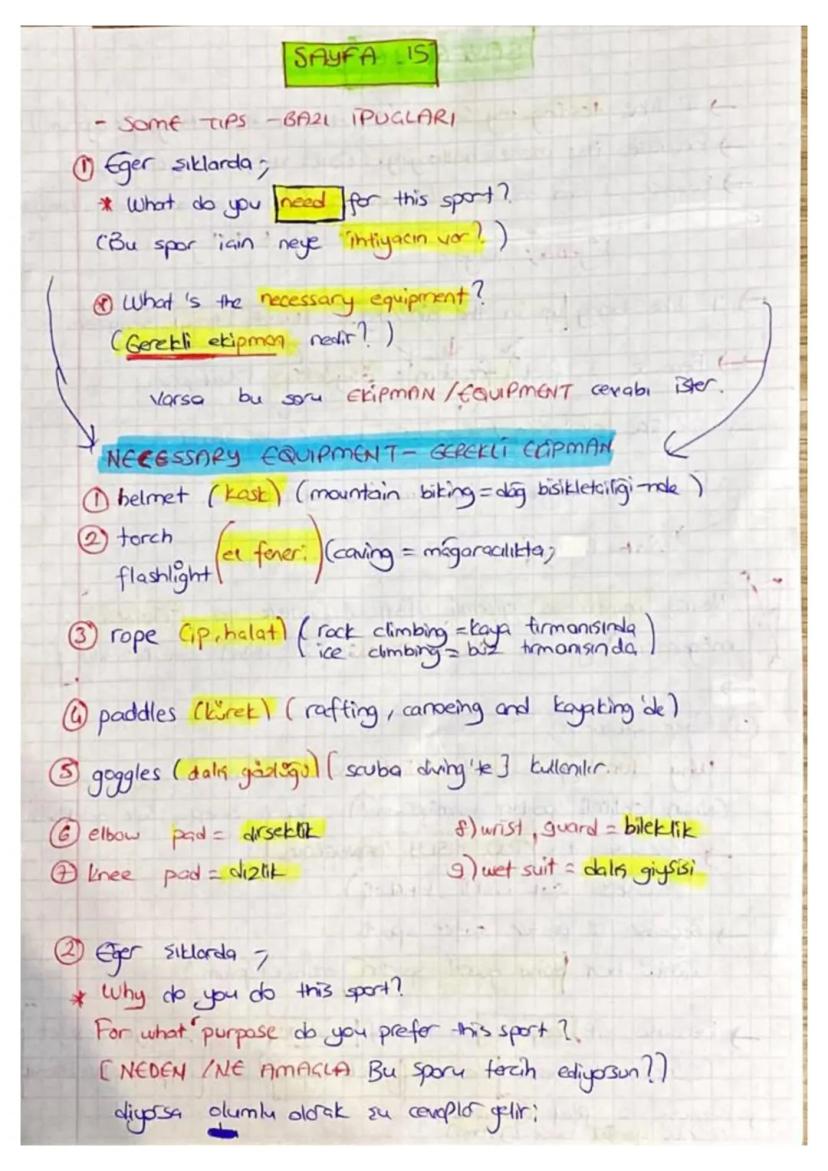 SAYFA 15
- SOME TIPS - BAZI İPUÇLARI
① Eğer şıklarda;
* What do you need for this sport?
(Bu spor için neye ihtiyacın var?)
* What's the necessary equipment?
(Gerekli ekipman nedir?)
Varsa bu soru EKİPMAN / EQUIPMENT cevabı ister.
NECESSARY EQUIPMENT - GEREKLİ EKİPMAN
① helmet (kask) (mountain biking = dağ bisikletciliği-nde)
② torch
flashlight (el feneri) (caving = mağaracılıkta;
③ rope (ip, halat) (rock climbing = kaya tırmanışında
ice climbing = buz tırmanışında)
④ paddles (kürek) (rafting, canoeing and kayaking'de)
⑤ goggles (dalış gözlüğü) [scuba diving'te] kullanılır.
⑥ elbow pad = dirseklik 8) wrist, guard = bileklik
⑦ knee pad = dizlik 9) wet suit = dalış giysisi
② Eğer şıklarda;
* Why do you do this sport?
For what purpose do you prefer this sport?
[NEDEN / NE AMAÇLA Bu sporu tercih ediyorsun?)
diyorsa olumlu olarak şu cevaplar gelir;